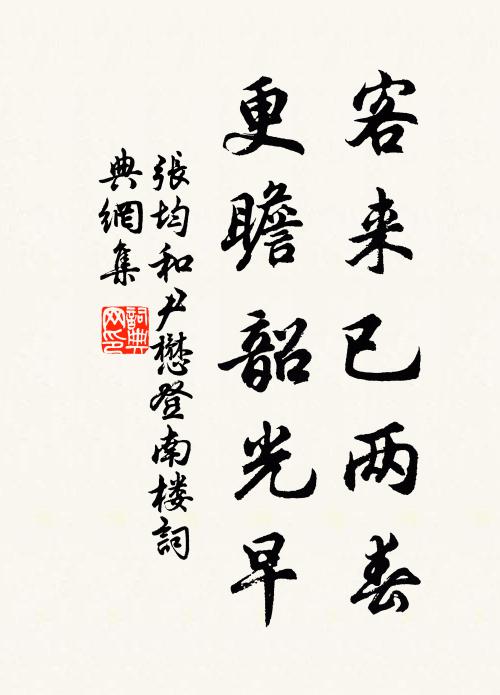 客来已两春
更瞻韶光早
張均和尹懋登南楼詞
典網集
詞典
网印